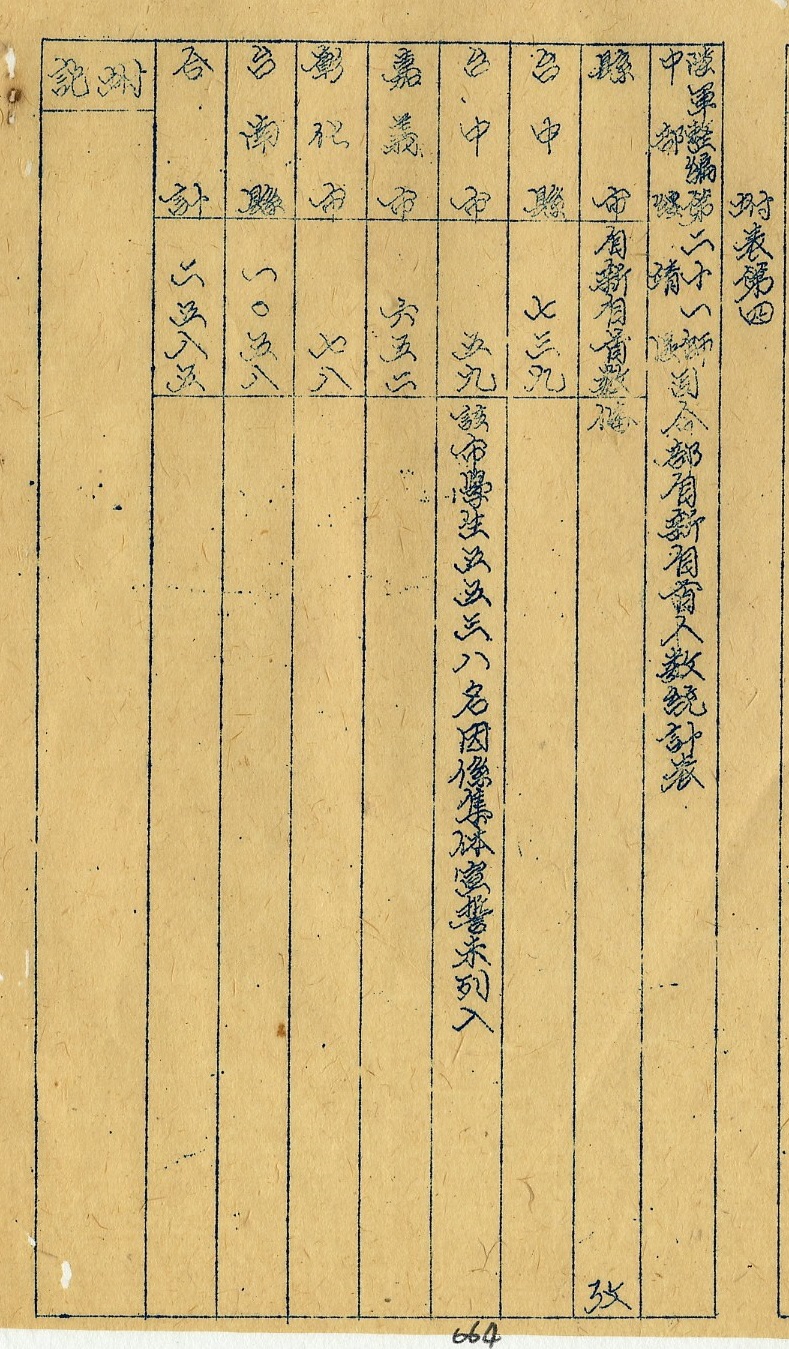 附表第四
陸軍整編第二十一師司令部自新自首人數統計表
中部綏靖區
縣市 自新自首數 備 攷
台中縣 七三九
台中市 五九 該市學生五五三八名因係集体宣誓未列入
嘉義市 六五二
彰化市 七八
台南縣 一〇五八
合計 二五八五
附記
664